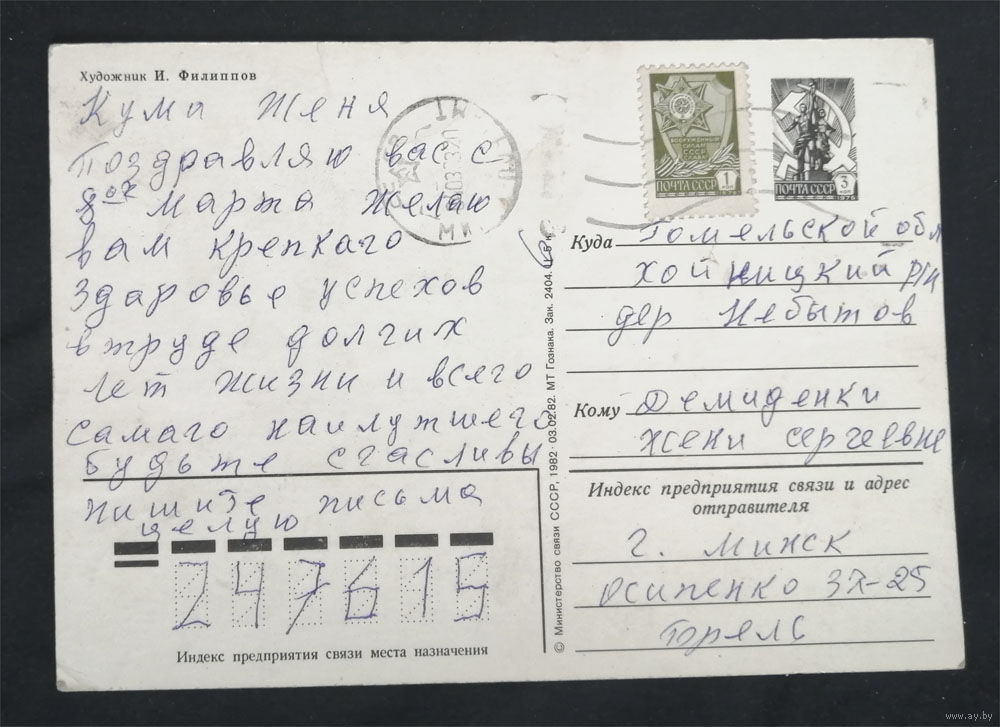 Художник И. Филиппов
Кума Женя
Поздравляю вас с
8ох марта Желаю
вам крепкаго
здаровье успехов
втруде долгих
лет жизни и всего
самаго наилутшего
будьте счасливы
пишите письма
целую
247615
Индекс предприятия связи места назначения
© Министерство связи СССР, 1982 · 03.02.82. МТ Гознака. Зак. 2404.
ВООРУЖЕННЫМ
СИЛАМ
СССР
СЛАВА
ПОЧТА СССР 1 КОП
1976
ПОЧТА СССР 3 КОП
1976
Куда Гомельской обл
хойницкий р/н
дер Небытов
Кому Демиденки
Жени Сергеевне
Индекс предприятия связи и адрес
отправителя
г. Минск
Осипенко 25
www.ay.by